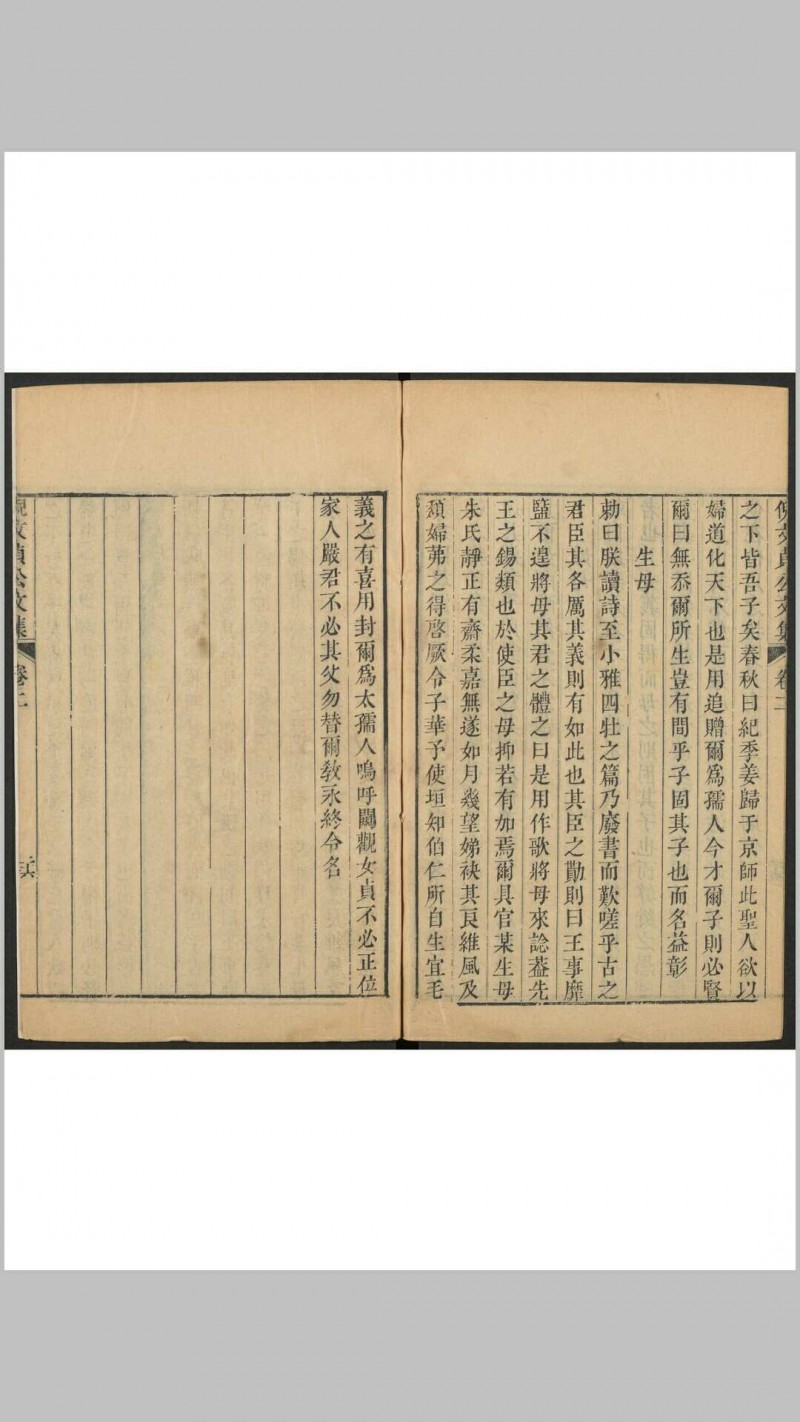 之下皆吾子矣春秋曰紀季姜歸于京師此聖人欲以
婦道化天下也是用追贈爾爲孺人今才爾子則必賢
爾曰無忝爾所生豈有間乎子固其子也而名益彰
生母
勑曰朕讀詩至小雅四牡之篇乃廢書而歎嗟乎古之
君臣其各厲其義則有如此也其臣之勤則曰王事靡
盬不遑將母其君之體之曰是用作歌將母來諗葢先
王之錫類也於使臣之母抑若有加焉爾具官某生母
朱氏靜正有齋柔嘉無遂如月幾望娣袂其良維風及
頹婦茀之得啓厥令子華予使垣知伯仁所自生宜毛
義之有喜用封爾爲太孺人嗚呼闚觀女貞不必正位
家人嚴君不必其父勿替爾敎永終令名
倪文貞公文集
卷二